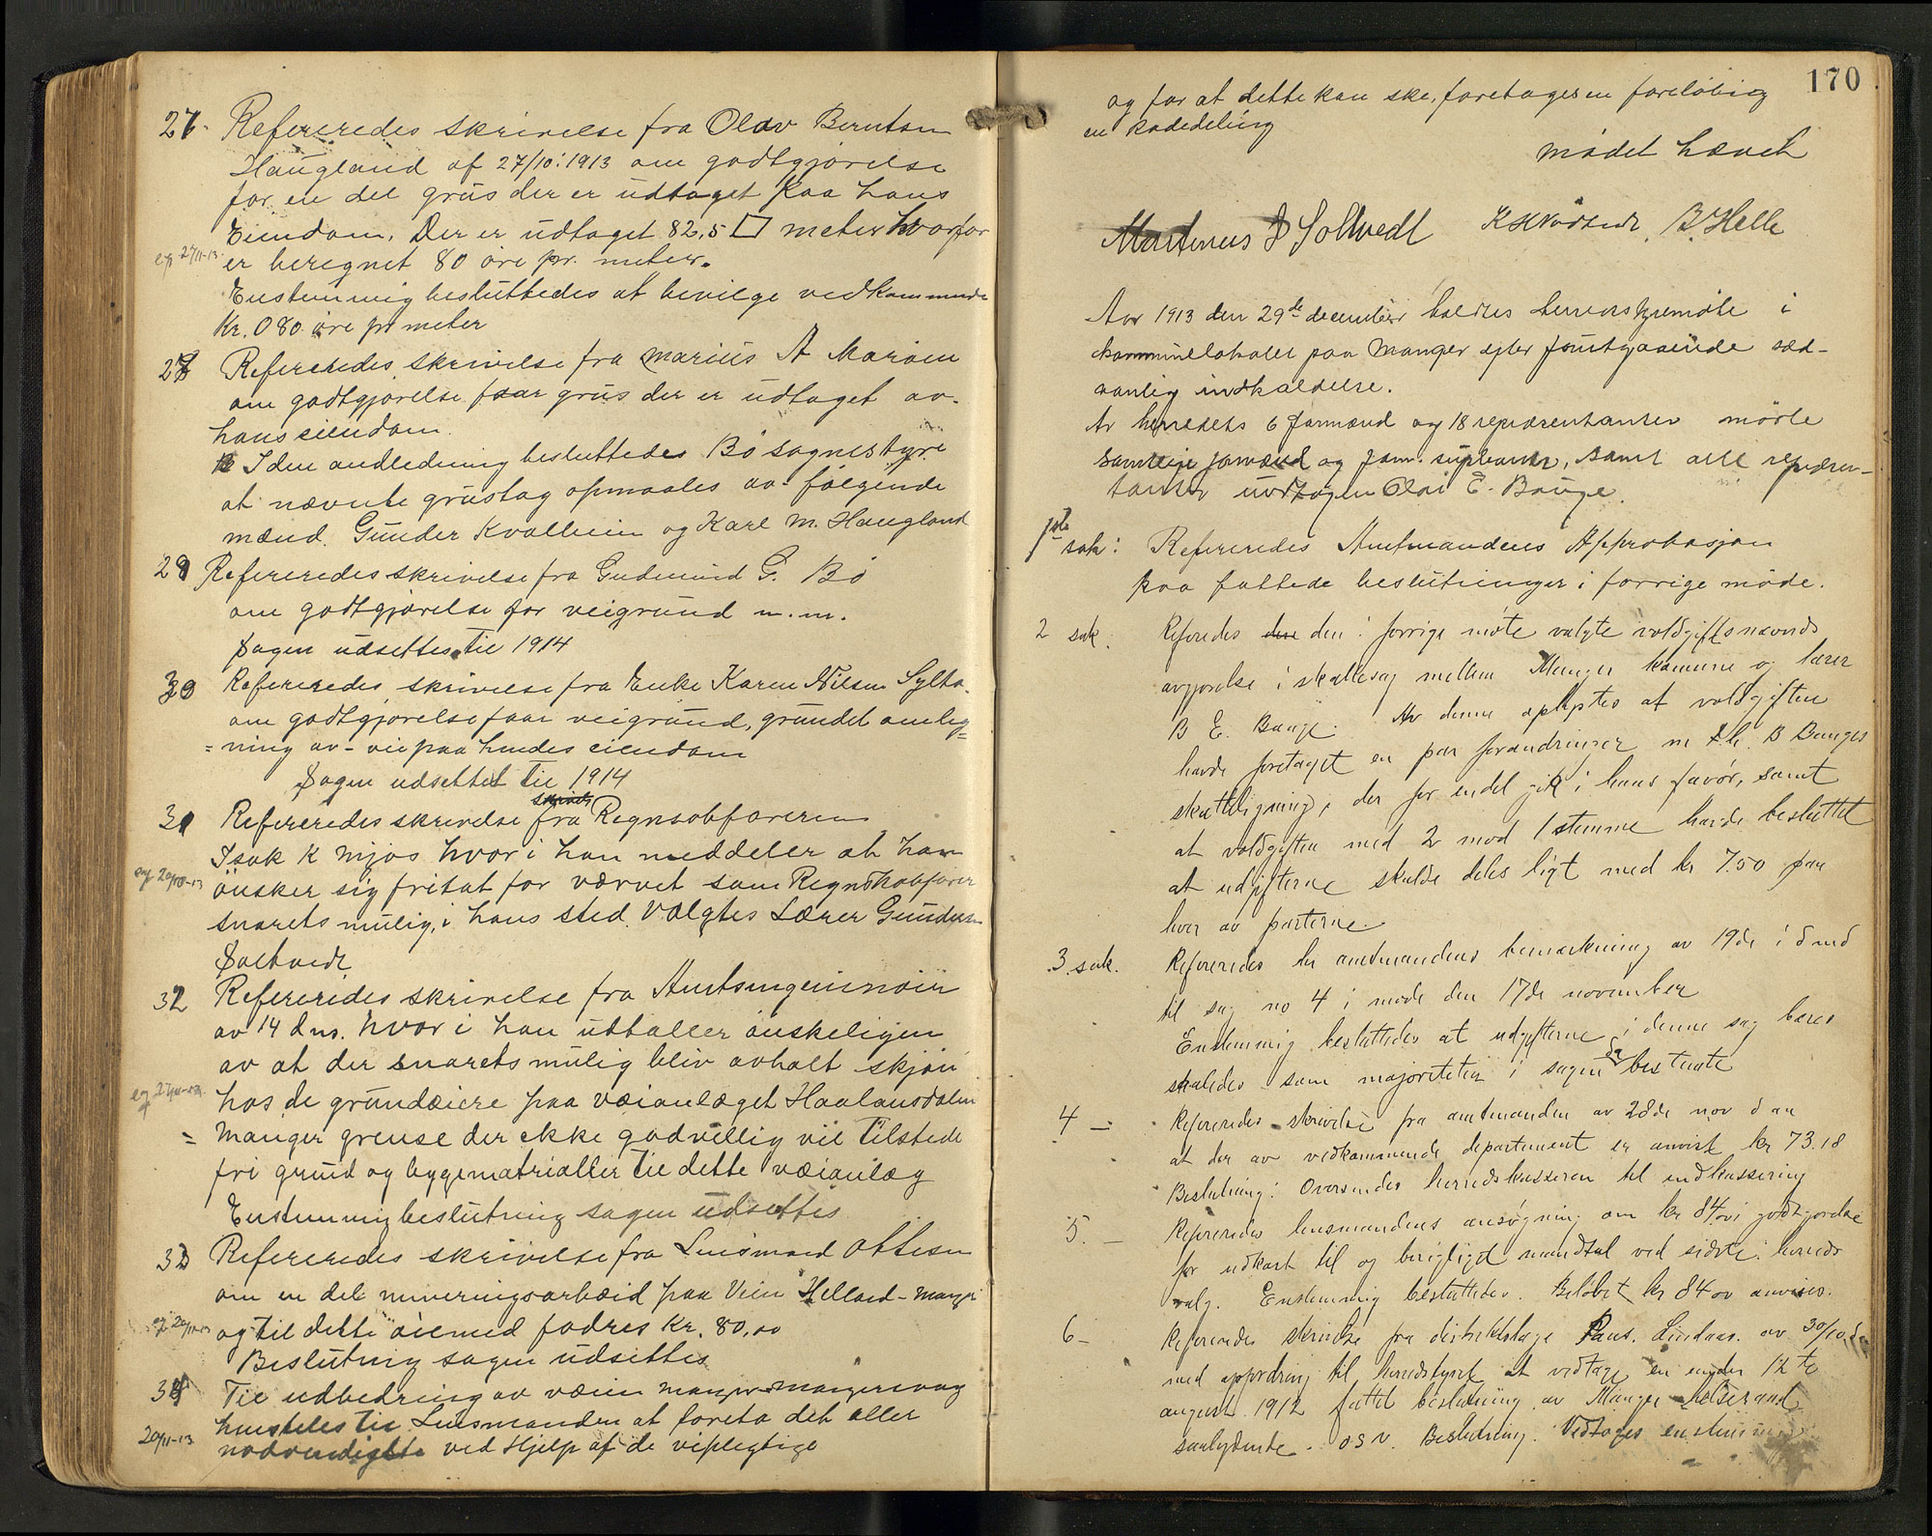 27. Refereredes skrivelse fra Olav Berntsen
Haugland af 27/10.1913 om godtgjørelse
for en del grus der er udtaget paa hans
Eiendom. Der er udtaget 82,5 □ meter hvorfor
er beregnet 80 øre pr. meter.
Enstemmig besluttedes at bevilge vedkommende
Kr. 0 80 øre pr meter
28 Refereredes skrivelse fra Marius A Marøen
om godtgjørelse foar grus der er udtaget av-
hans eiendom.
I den andledning besluttedes Bø sognestyre
at nævnte grustag opmaales av følgende
mænd. Gunder Kvalheim og Karl M. Haugland
29 Refereredes skrivelse fra Gudmund G. Bø
om godtgjørelse for veigrund m.m.
Sagen udsettes til 1914
30 Refereredes skrivelse fra Enke Karen Nilsen Sylta.
om godtgjørelse foar veigrund, grundet omleg=
=ning av- vei paa hendes eiendom
Sagen udsettet til 1914
31 Refereredes skrivelse fra Regnsobføreren
Isak K Mjøs hvor i han meddeler at han
ønsker sig fritat for værvet som Regnskobfører
snarets mulig, i hans sted. Valgtes Lærer Gundersen
Soltvedt
32 Refereredes skrivelse fra Amtsingeniøin
av 14 dns. hvor i han udtaller ønskeligen
av at der snarets mulig bliv avholt skjøn
hos de grundæiere paa væianlæget Haalandsdalen
= Manger grense der ekke godvillig vil tilstede
fri grund og bygematrialler til dette væianlæg
Enstemmig beslutning sagen udsettes
33 Refereredes skrivelse fra Lensmand Ottesen
om en del mineringsarbæid paa Vein Helland - Manger
og til dette øiemed fodres Kr. 80,00
Beslutnig sagen udsettes
34 Til udbedring av væien Manger-Mangersvaag
henstiles til Lensmanden at foreta det aller
nødvendigste ved Hjelp af de vipligtige
20/11-13
170
og for at dette kan ske, foretages en foreløbig
en kodedeling
mødet hævet
Martinus J Soltvedt B. Helle
Aar 1913 den 29de december holdtes herredsstyremøte i
kommunelokalet paa Manger efter forutgaaende sæd-
vanlig indkaldelse.
Av herredets 6 formænd og 18 repræsentanter mødte
samtlige formænd og form. suplanter, samt alle repræsen-
tanter undtagen Olai E. Bauge.
1ste sak: Refereredes Amtmandens Approbasjon
paa fattede beslutninger i forrige møde.
2 sak: Referedes den i forrige møte valgte voldgiftsnævnds
avgjørelse i skattesag mellem Manger komune og lærer
B E. Bauge. Av denne oplystes at voldgiften
havde foretaget en par forandringer m. h. B Bauges
skatteligning, der for endel gik i hans favør, samt
at voldgiften med 2 mod 1 stemme havde besluttet
at udgifterne skulde deles ligt med kr 7.50 paa
hver av parterne.
3. sak. Refereredes hr amtmandens bemærkning av 19de i d md
til sag no 4 i møde den 17de november
Enstemmig besluttedes at udgifterne i denne sag bæres
skaledes som majoriteten i sagen bestemte
4 — Refereredes skrivelse fra amtmanden av 28de nov d aa
at der av vedkommende departement er anvist kr 73.18
Beslutning: Oversendes herredskasseren til indkassering
5. — Refereredes lensmandens ansøgning om kr 84.00 i godtgjørelse
for udkast til og berigtiget mandtal ved sidste herreds
valg. Enstemmig besluttedes. Beløbet kr 84 00 anvises.
6 — Refereredes skrivelse fra distriktslæge Lindaas. av 30/10
med oppfordring til herredstyret at vedtage en under 12te
august 1912 fattet beslutning av Manger
samlydende. osv. Beslutning. Vedtages enstemmig